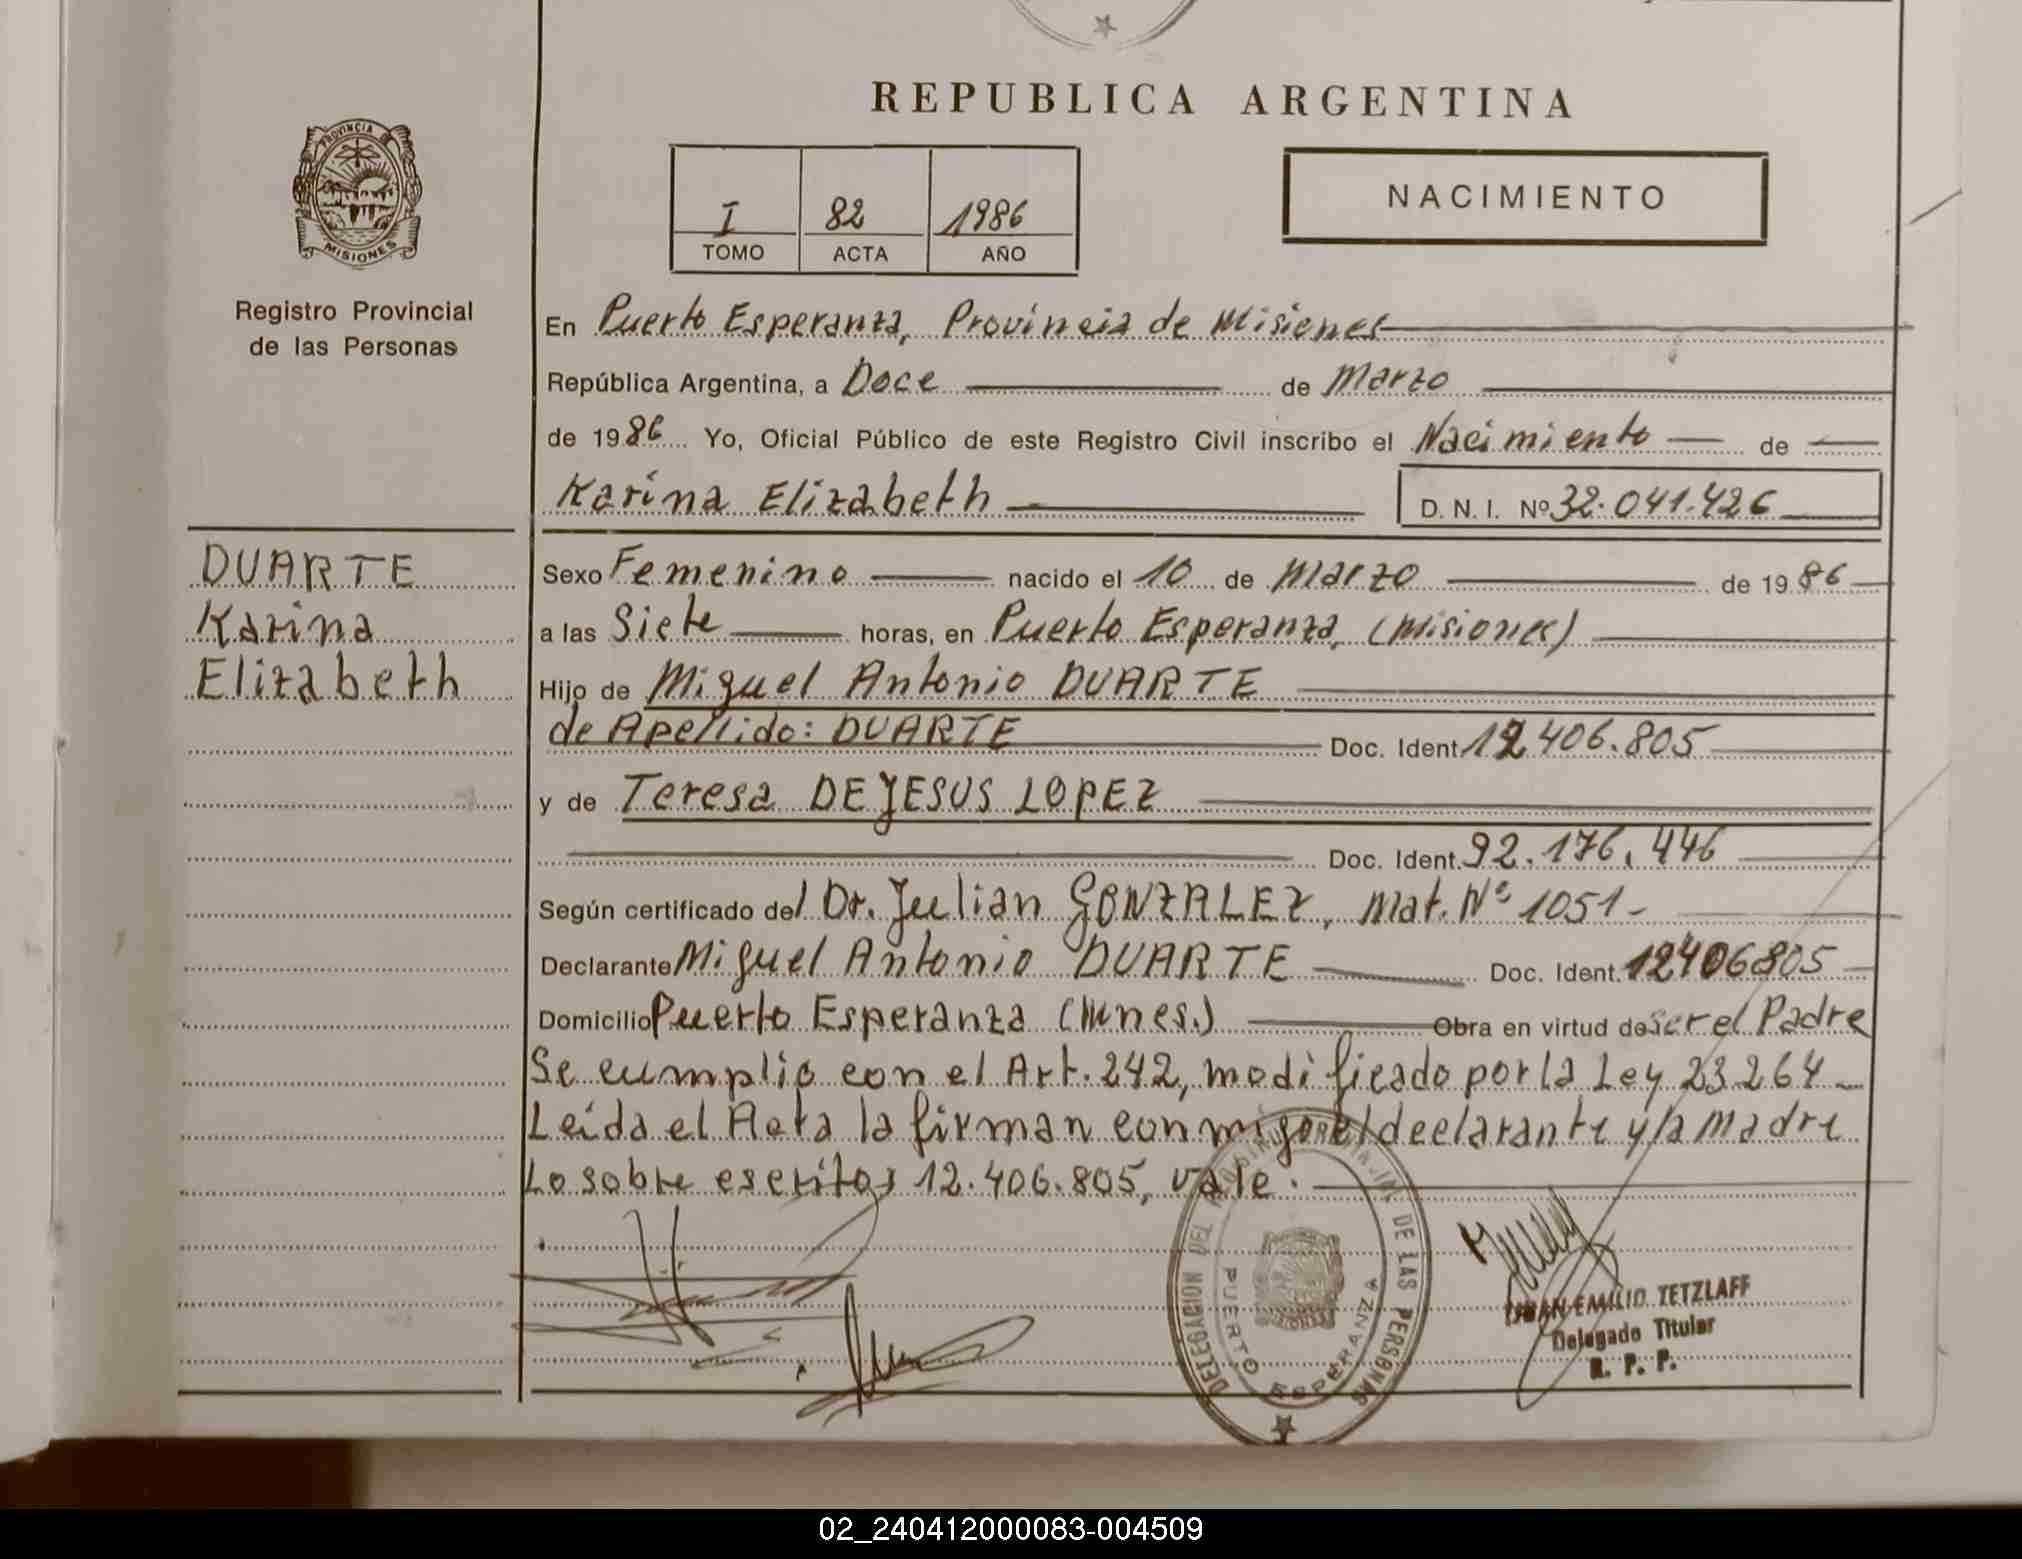 REPUBLICA ARGENTINA
PROVINCIA DE
MISIONES
I 82 1986
TOMO ACTA AÑO
NACIMIENTO
Registro Provincial
de las Personas
En Puerto Esperanza, Provincia de Misiones
República Argentina, a Doce de Marzo
de 1986 Yo, Oficial Público de este Registro Civil inscribo el Nacimiento de
Karina Elizabeth D. N. I. Nº 32.041.426
DUARTE
Karina
Elizabeth
Sexo Femenino nacido el 10 de Marzo de 1986
a las Siete horas, en Puerto Esperanza, (Misiones)
Hijo de Miguel Antonio DUARTE
de Apellido: DUARTE Doc. Ident. 12.406.805
y de Teresa DE JESUS LOPEZ
Doc. Ident. 92.176.446
Según certificado del Dr. Julian GONZALEZ, Mat. Nº 1051-
Declarante Miguel Antonio DUARTE Doc. Ident. 12406805
Domicilio Puerto Esperanza (Mnes.) Obra en virtud de ser el Padre
Se cumplio con el Art. 242, modificado por la Ley 23.264
Leída el Acta la firman conmigo el declarante y la Madre
Lo sobre escrito: 12.406.805, vale.
DELEGACION DEL REGISTRO PROVINCIAL DE LAS PERSONAS
PUERTO ESPERANZA
JUAN EMILIO TETZLAFF
Delegado Titular
R. P. P.
02_240412000083-004509